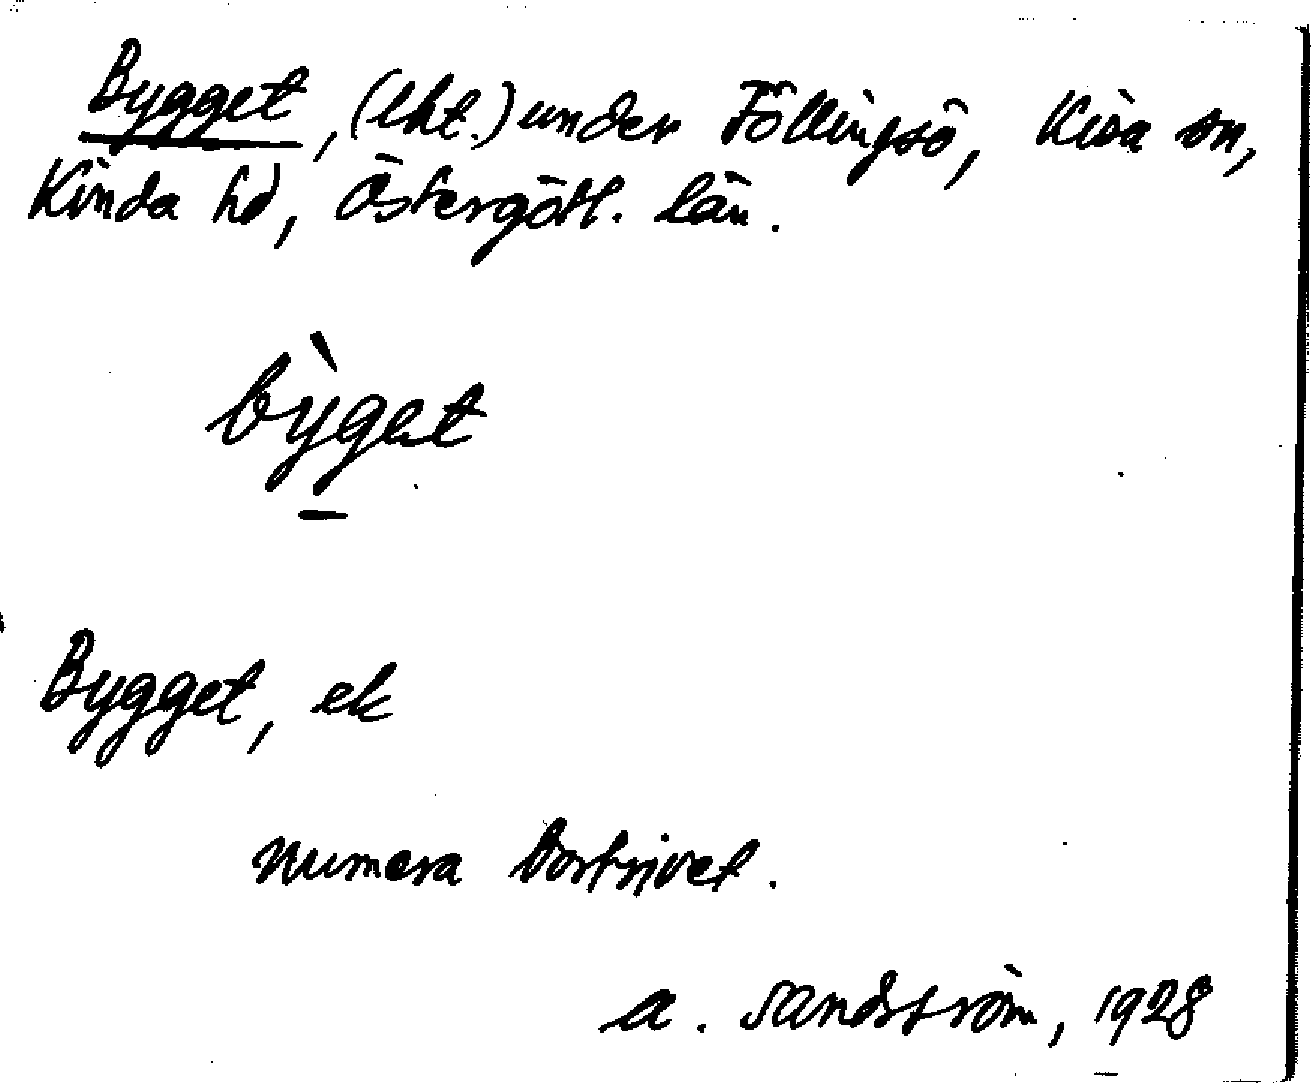 Bygget, (lht.) under Föllingsö, Kisa sn,
Kinda hd, Östergötl. län.
bỳget
Bygget, ek
Numera bortrivet.
A. Sandström, 1928